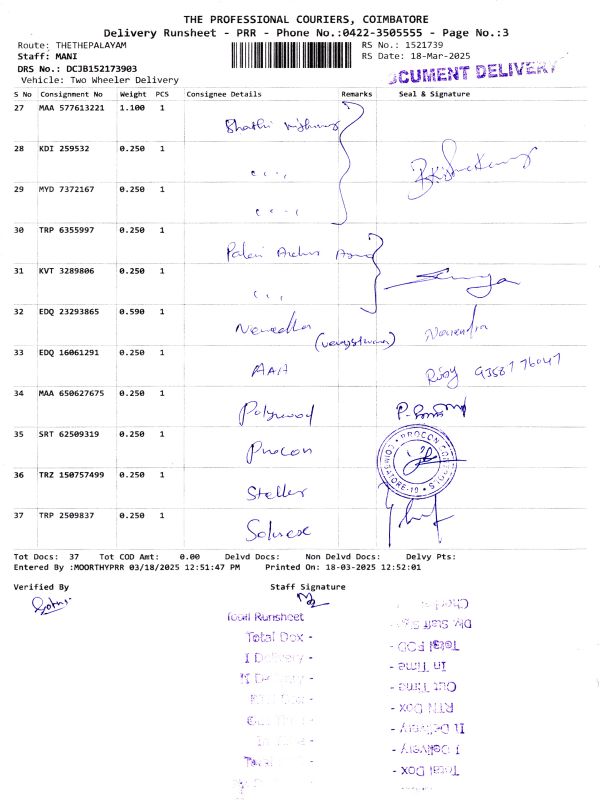 THE PROFESSIONAL COURIERS, COIMBATORE
Delivery Runsheet - PRR - Phone No.:0422-3505555 - Page No.:3
Route: THETHEPALAYAM RS No.: 1521739
Staff: MANI RS Date: 18-Mar-2025
DRS No.: DCJB152173903
DOCUMENT DELIVERY
Vehicle: Two Wheeler Delivery
S No Consignment No Weight PCS Consignee Details Remarks Seal & Signature
27 MAA 577613221 1.100 1
28 KDI 259532 0.250 1
29 MYD 7372167 0.250 1
30 TRP 6355997 0.250 1 Palani
31 KVT 3289806 0.250 1
32 EDQ 23293865 0.590 1 Narendra
33 EDQ 16061291 0.250 1 AAA Roby
34 MAA 650627675 0.250 1 Polywood
35 SRT 62509319 0.250 1 Procon PROCON
36 TRZ 150757499 0.250 1 Steller COIMBATORE-19
37 TRP 2509837 0.250 1
Tot Docs: 37 Tot COD Amt: 0.00 Delvd Docs: Non Delvd Docs: Delvy Pts:
Entered By :MOORTHYPRR 03/18/2025 12:51:47 PM Printed On: 18-03-2025 12:52:01
Verified By Staff Signature
Total Runsheet
Total Dox -
I Delivery -
II Delivery -
Checked
Dly. Staff Sign -
Total POD -
In Time -
Out Time -
RTN Dox -
II Delivery -
I Delivery -
Total Dox -